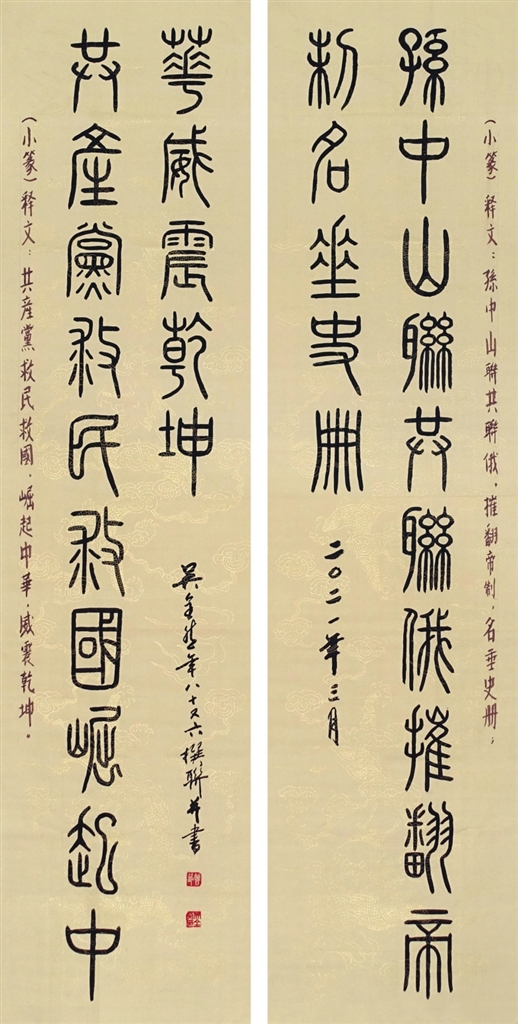 （小篆）释文：孫中山聯共聯俄，摧翻帝制，名垂史册；
孫中山聯共聯俄摧翻帝
制名垂史册
二〇二一年三月
（小篆）释文：共産黨救民救國，崛起中華，威震乾坤。
共產黨救民救國崛起中
華威震乾坤
吳年八十又六撰聯并書